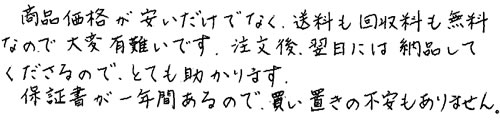 商品価格が安いだけでなく、送料も回収料も無料
なので大変有難いです。注文後、翌日には納品して
くださるので、とても助かります。
保証書が一年間あるので、買い置きの不安もありません。